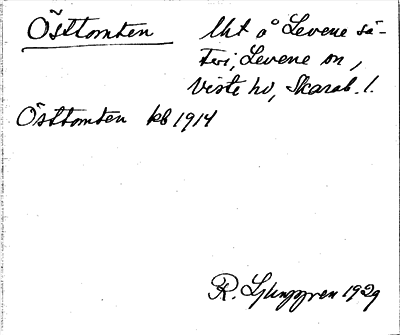 Östtomten
Uht å Levene sä-
teri, Levene sn,
Viste hd, Skarab. l.
Östtomten kb 1914
R. Ljunggren 1929